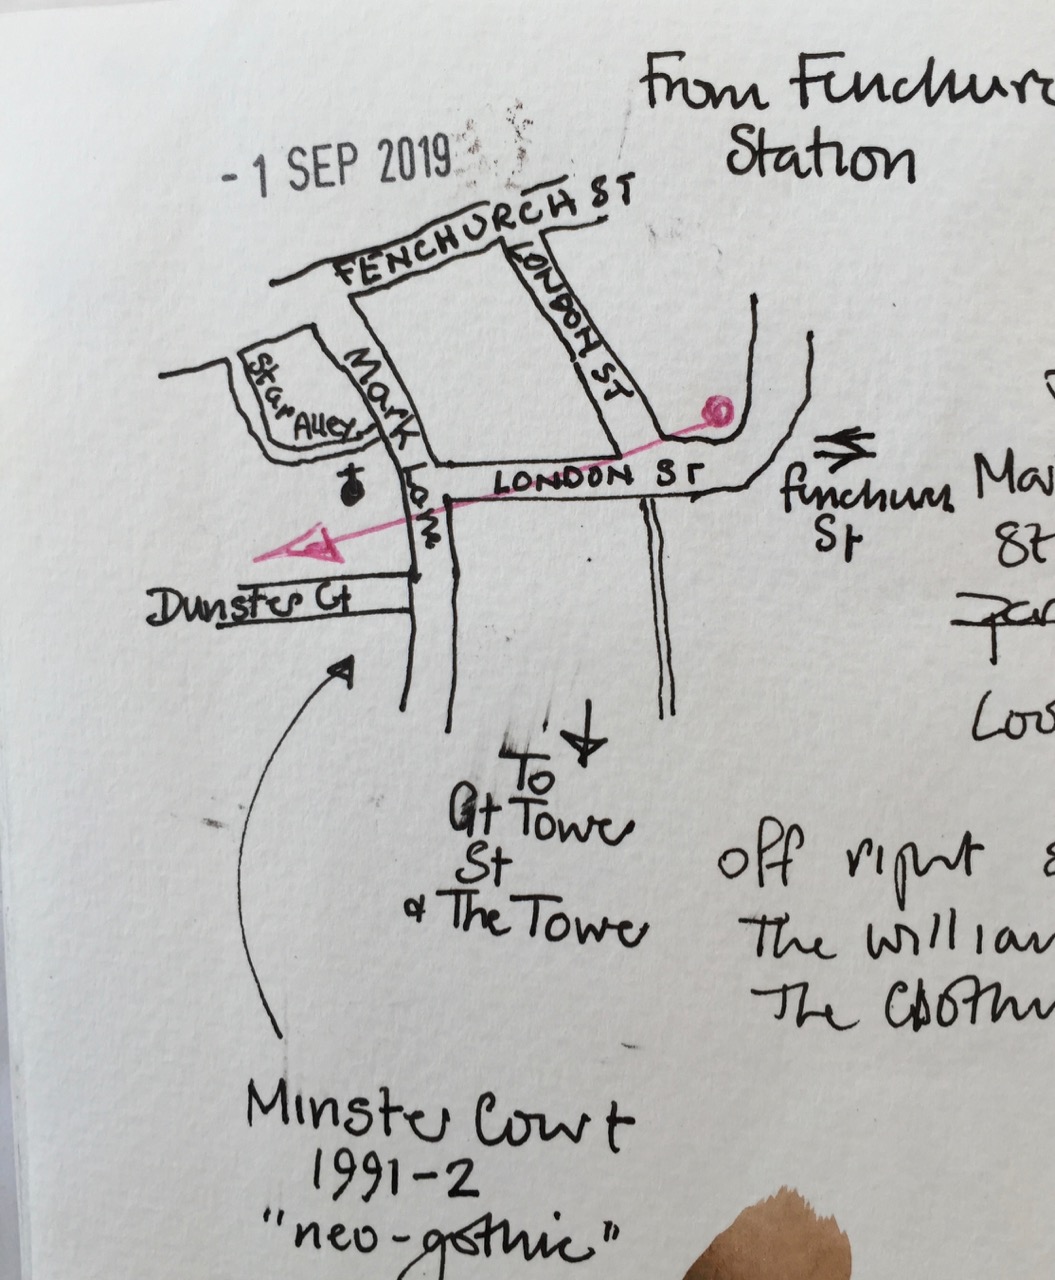 From Fenchurc
Station
- 1 SEP 2019
FENCHURCH ST
LONDON ST
Star
Alley
Mark Lane
LONDON ST
Fenchurch
St
Mar
Dunster Ct
Loo
To
Gt Tower
St
& The Tower
off right &
The William
The Clothw
Minster Court
1991-2
"neo-gothic"